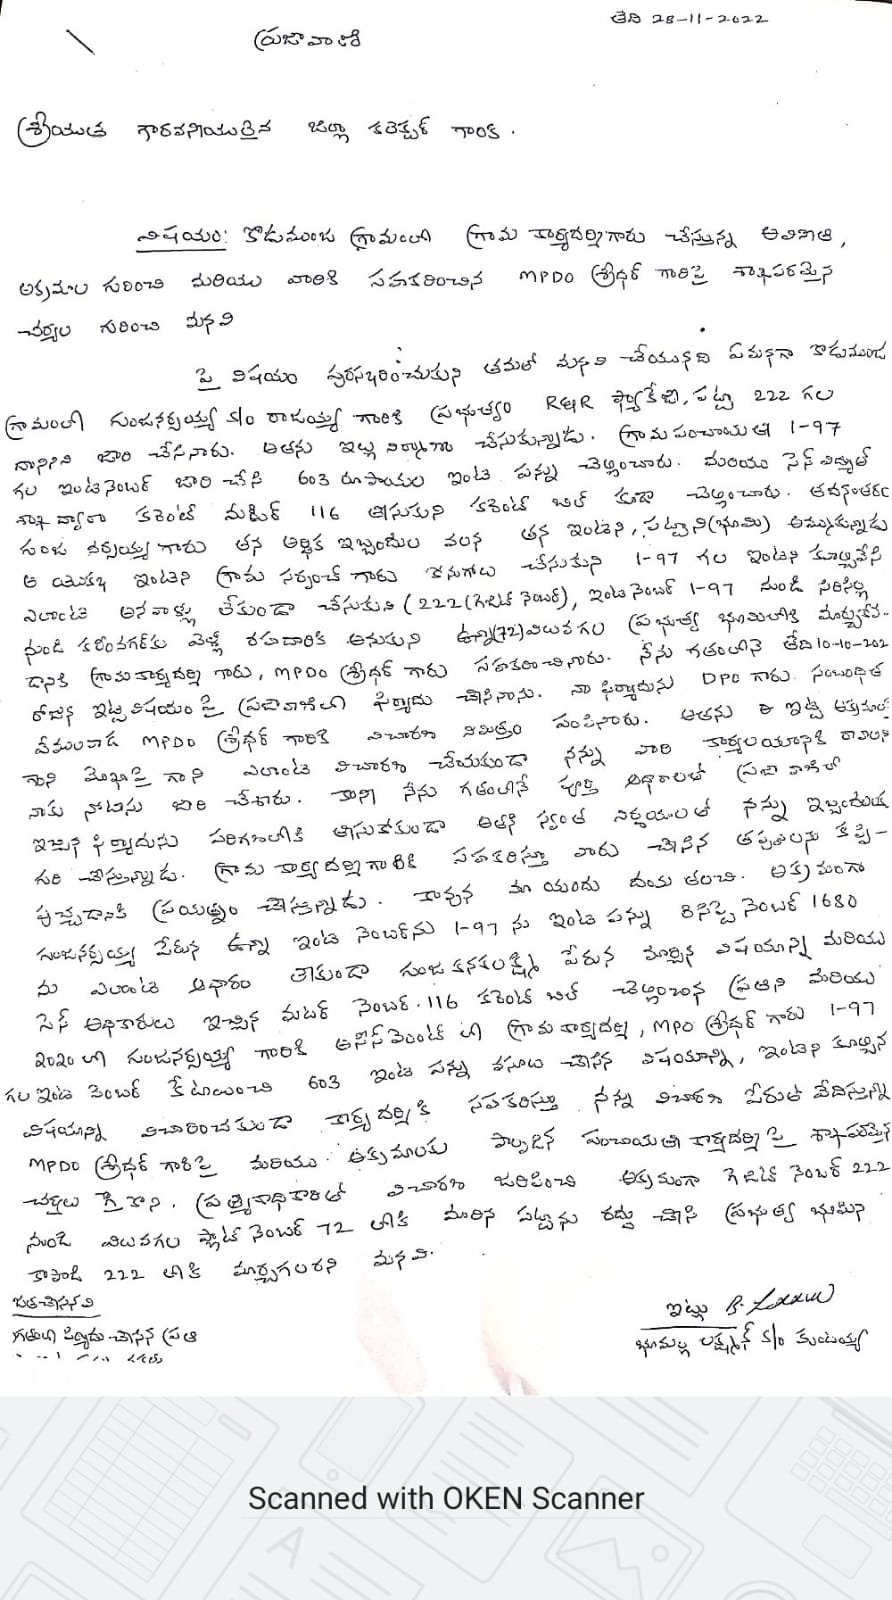 తేది 28-11-2022
ప్రజావాణి
శ్రీయుత గౌరవనీయులైన జిల్లా కలెక్టర్ గారికి.
విషయం: కొడుముంజ గ్రామంలో గ్రామ కార్యదర్శిగారు చేస్తున్న అవినీతి,
అక్రమాల గురించి మరియు వారికి సహకరించిన MPDO శ్రీధర్ గారిపై శాఖపరమైన
చర్యల గురించి మనవి
పై విషయం పురస్కరించుకుని తమతో మనవి చేయునది ఏమనగా కొడుముంజ
గ్రామంలో గుంజనర్సయ్య S/o రాజయ్య గారికి ప్రభుత్వం R&R ప్యాకేజి, పట్టా 222 గల
దానిని జారి చేసినారు. అతను ఇల్లు నిర్మాణం చేసుకున్నాడు. గ్రామ పంచాయతి 1-97
గల ఇంటినెంబర్ జారి చేసి 603 రూపాయల ఇంటి పన్ను చెల్లించారు. మరియు సెస్ విద్యుత్
శాఖ ద్వారా కరెంట్ మీటర్ 116 తీసుకుని కరెంట్ బిల్ కూడా చెల్లించారు. తదనంతరం
గుంజ నర్సయ్య గారు తన ఆర్థిక ఇబ్బందుల వలన తన ఇంటిని, పట్టాని(భూమి) అమ్ముకున్నాడు
ఆ యొక్క ఇంటిని గ్రామ సర్పంచ్ గారు కొనుగోలు చేసుకుని 1-97 గల ఇంటిని కూల్చివేసి
ఎలాంటి ఆనవాళ్లు లేకుండా చేసుకుని (222(గెజిట్ నెంబర్), ఇంటి నెంబర్ 1-97 నుండి సిరిసిల్ల
నుండి కరీంనగర్‌కు వెళ్లే రహదారికి ఆనుకుని ఉన్న(72)విలువ గల ప్రభుత్వ భూమిలోకి మార్చుకోవ-
డానికి గ్రామకార్యదర్శి గారు, MPDO శ్రీధర్ గారు సహకరించినారు. నేను గతంలోనె తేది 10-10-202
రోజున ఇట్టి విషయం పై ప్రజావాణిలో ఫిర్యాదు చేసినాను. నా ఫిర్యాదును DPO గారు సంబంధిత
వేములవాడ MPDO శ్రీధర్ గారికి విచారణ నిమిత్తం పంపినారు. అతను ఈ ఇట్టి అక్రమాల
గాని మోఖాపై గాని ఎలాంటి విచారణ చేయకుండా నన్ను వారి కార్యాలయానికి రావాలని
నాకు నోటీసు జారి చేశారు. కాని నేను గతంలోనే పూర్తి ఆధారాలతో ప్రజా వాణిలో
ఇచ్చిన ఫిర్యాదును పరిగణలోకి తీసుకోకుండా అతని స్వంత నిర్ణయాలతో నన్ను ఇబ్బందులకు
గురి చేస్తున్నాడు. గ్రామ కార్యదర్శి గారికి సహకరిస్తూ వారు చేసిన తప్పులను కప్పి-
పుచ్చడానికి ప్రయత్నం చేస్తున్నాడు. కావున మా యందు దయ తలచి. అక్రమంగా
గుంజనర్సయ్య పేరున ఉన్న ఇంటి నెంబర్‌ను 1-97 ను ఇంటి పన్ను రిసిప్ట్ నెంబర్ 1680
ను ఎలాంటి ఆధారం లేకుండా గుంజ కనకలక్ష్మి పేరున మార్చిన విషయాన్ని మరియు
సెస్ అధికారులు ఇచ్చిన మీటర్ నెంబర్. 116 కరెంట్ బిల్ చెల్లించిన ప్రతిని మరియు
2020 లో గుంజనర్సయ్య గారికి అసెస్‌మెంట్ లో గ్రామ కార్యదర్శి, MPO శ్రీధర్ గారు 1-97
గల ఇంటి నెంబర్ కేటాయించి 603 ఇంటి పన్ను వసూలు చేసిన విషయాన్ని, ఇంటిని కూల్చిన
విషయాన్ని విచారించకుండా కార్యదర్శికి సహకరిస్తూ నన్ను విచారణ పేరుతో వేదిస్తున్న
MPDO శ్రీధర్ గారిపై మరియు అక్రమాలకు పాల్పడిన పంచాయతి కార్యదర్శి పై శాఖపరమైన
చర్యలు గైకొని. ప్రత్యేకాధికారితో విచారణ జరిపించి అక్రమంగా గెజిట్ నెంబర్ 222
నుండి విలువగల ప్లాట్ నెంబర్ 72 లోకి మారిన పట్టాను రద్దు చేసి ప్రభుత్వ భూమిని
కాపాడి 222 లోకి మార్చగలరని మనవి.
జతచేసినవి
గతంలో ఫిర్యాదు చేసిన ప్రతి
ఇట్లు
భూమల్ల లక్ష్మణ్ S/o కుంటయ్య
Scanned with OKEN Scanner